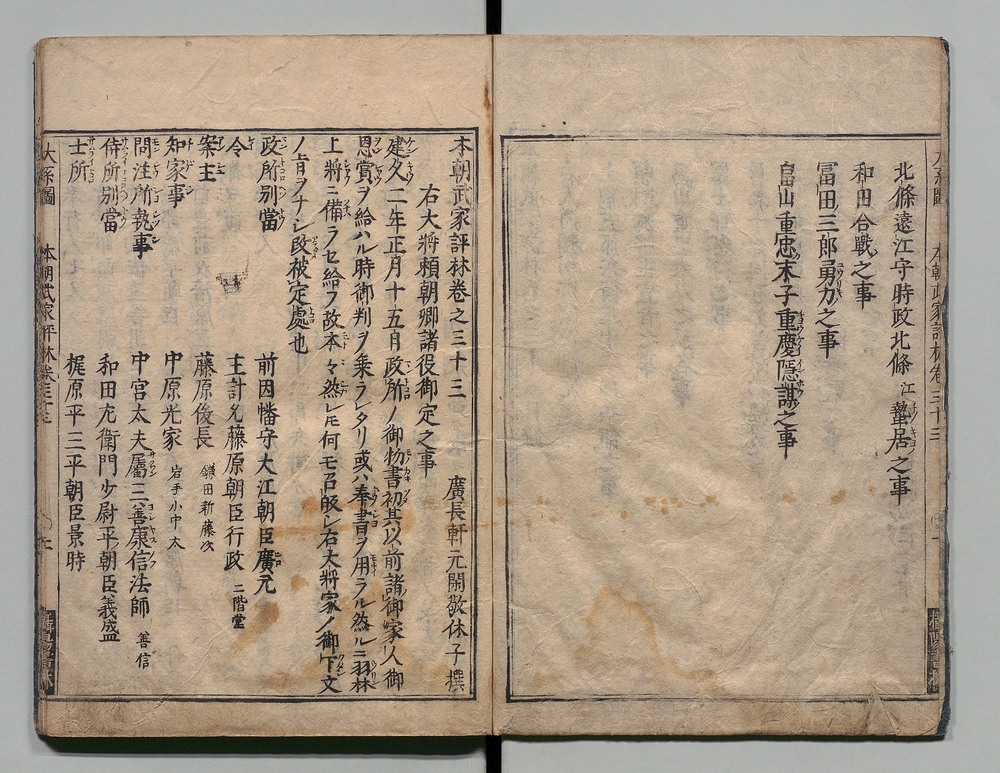 北條遠江守時政北條江蟄居之事
和田合戰之事
冨田三郎勇力之事
畠山重忠末子重慶隱謀之事
本朝武家評林卷之三十三
廣長軒元閑敬休子撰
右大將賴朝卿諸役御定之事
建久二年正月十五日政所ノ御物書初其以前諸御家人御
恩賞ヲ給ハル時御判ヲ乗ラレタリ或ハ奉書ヲ用ラル然ルニ羽林
上將ニ備ラセ給フ故本々然レ𪜈何モ召皈レ右大將家ノ御下文
ノ旨ヲナシ改被定處也
政所別當 前因幡守大江朝臣廣元
令 主計允藤原朝臣行政 二階堂
案主 藤原俊長 鎌田新藤次
知家事 中原光家 岩手小中太
問注所執事 中宮太夫屬三善康信法師 善信
侍所別當 和田左衛門少尉平朝臣義盛
士所 梶原平三平朝臣景時
大系圖 本朝武家評林卷三十三